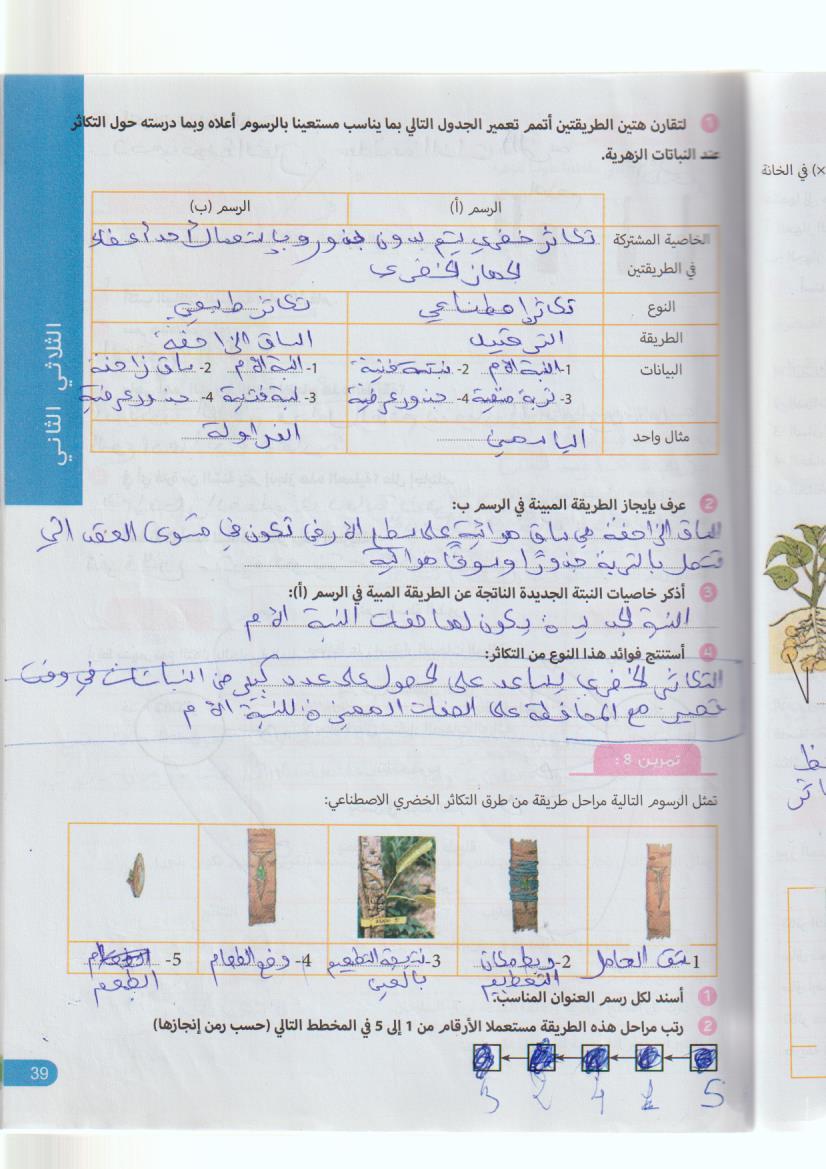 1 لتقارن هتين الطريقتين أتمم تعمير الجدول التالي بما يناسب مستعينا بالرسوم أعلاه وبما درسته حول التكاثر
عند النباتات الزهرية.
الرسم (أ) الرسم (ب)
الخاصية المشتركة في الطريقتين تكاثر خضري يتم بدون بذور وبإستعمال أحد أعضاء
الجهاز الخضري
النوع تكاثر إصطناعي تكاثر طبيعي
الطريقة الترقيد الساق الزاحفة
البيانات 1- النبتة الأم 2- نبتة فتية 1- النبتة الأم 2- ساق زاحفة
3- تربة 4- جذور عرضية 3- نبتة فتية 4- جذور عرضية
مثال واحد الياسمين الفراولة
2 عرف بإيجاز الطريقة المبينة في الرسم ب:
الساق الزاحفة هي ساق هوائية على سطح الأرض تكون في مستوى العقد التي
تتصل بالتربة جذورًا وسوقًا هوائية
3 أذكر خاصيات النبتة الجديدة الناتجة عن الطريقة المبية في الرسم (أ):
النبتة الجديدة يكون لها صفات النبتة الأم
4 أستنتج فوائد هذا النوع من التكاثر:
التكاثر الخضري يساعد على الحصول على عدد كبير من النباتات في وقت
قصير مع المحافظة على الصفات المميزة للنبتة الأم
تمرين 8:
تمثل الرسوم التالية مراحل طريقة من طرق التكاثر الخضري الاصطناعي:
1 شق الحامل 2- ربط مكان التطعيم 3- نتيجة التطعيم بالعين 4- وضع الطعام 5- الطعم
1 أسند لكل رسم العنوان المناسب:
2 رتب مراحل هذه الطريقة مستعملا الأرقام من 1 إلى 5 في المخطط التالي (حسب رمن إنجازها)
5 1 4 2 3
الثلاثي الثاني
39
×) في الخانة